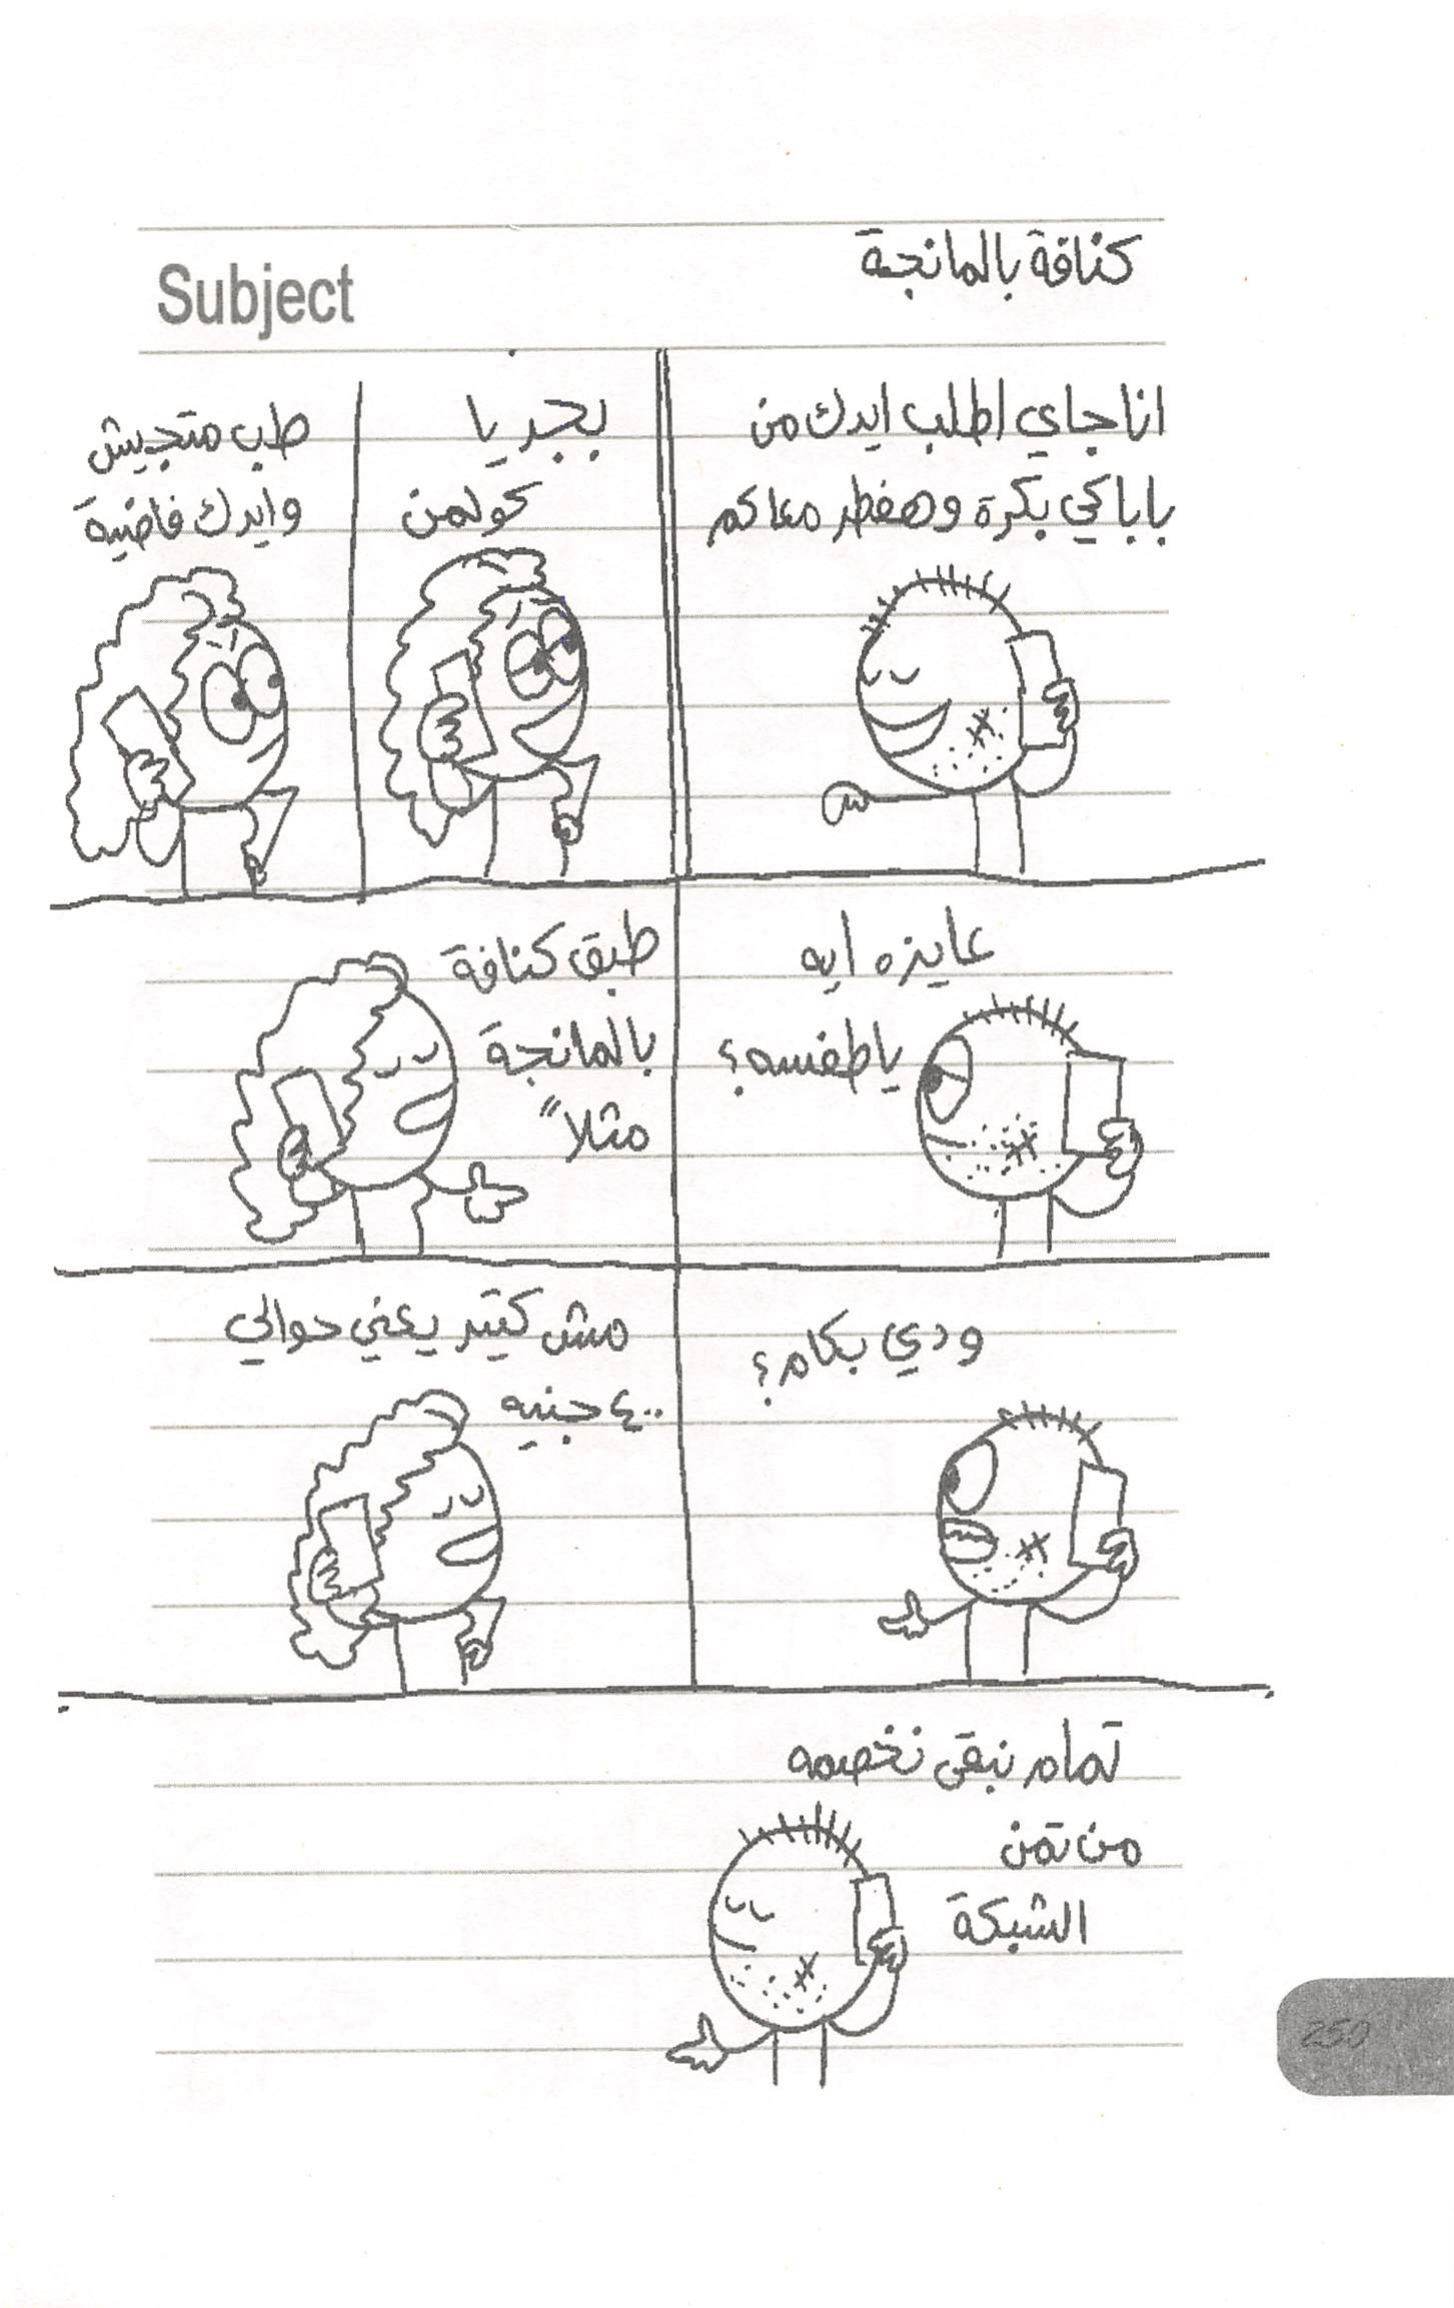 كنافة بالمانجة
Subject
انا جاي اطلب ايدك من
باباكي بكرة وهفطر معاكم
بجد يا
كولمن
طب متجيش
وايدك فاضية
عايزه ايه
ياطفسه؟
طبق كنافة
بالمانجة
مثلاً
ودي بكام؟
مش كتير يعني حوالي
٤٠٠ جنيه
تمام نبقى نخصمه
من تمن
الشبكة
250